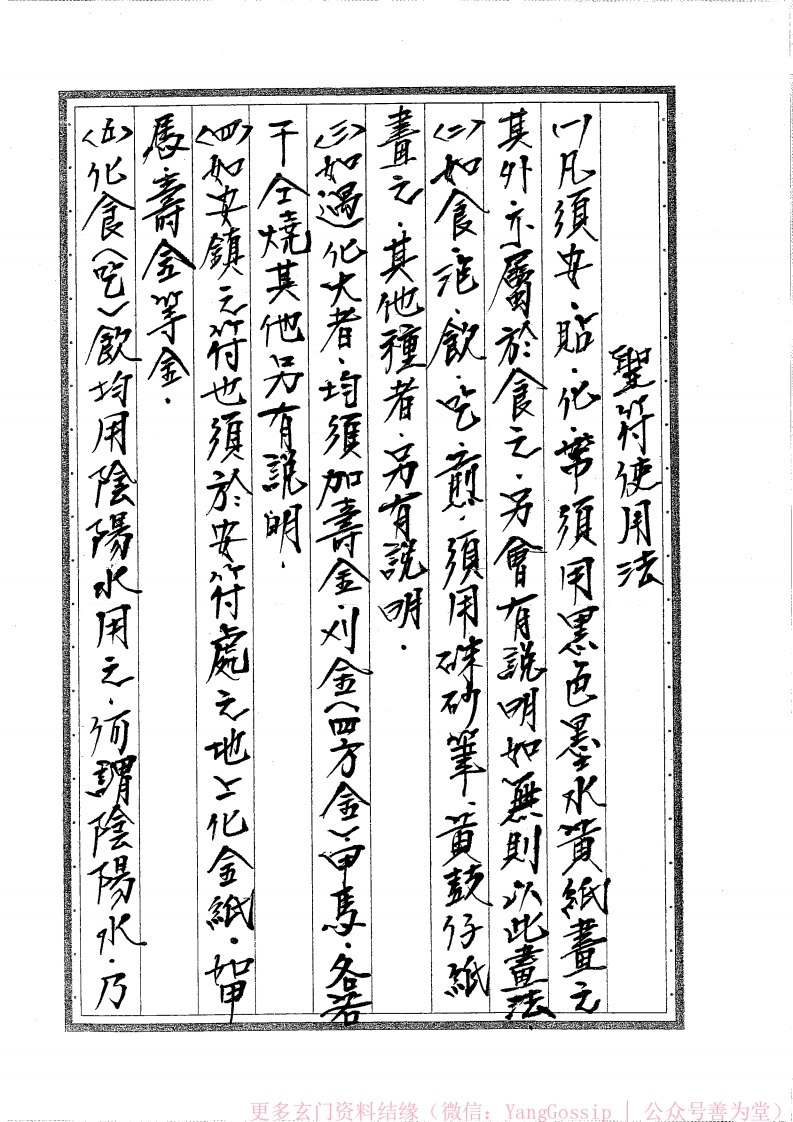 聖符使用法
(一)凡須安．貼．化．帶須用黑色墨水黃紙畫之
其外亦屬於食之．另會有說明如無則以此畫法
(二)如食．泡．飲．吃．煎．須用硃砂筆、黃鼓仔紙
畫之．其他種者．另有說明．
(三)如遇化大者．均須加壽金．刈金(四方金)．甲馬．各若
干仝燒其他另有說明．
(四)如安鎮之符也須於安符處之地上化金紙．如甲
馬．壽金等金．
(五)化食(吃)飲均用陰陽水用之．何謂陰陽水．乃
更多玄门资料结缘（微信：YangGossip | 公众号善为堂）